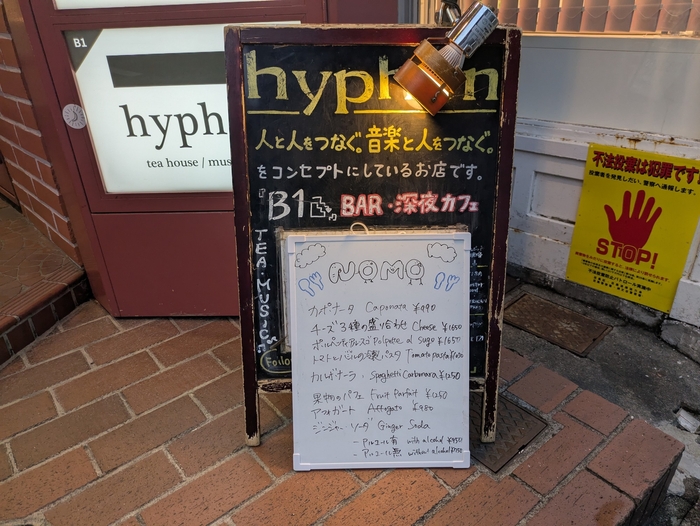 B1
hyph
tea house / mus
hyphen
人と人をつなぐ。音楽と人をつなぐ。
をコンセプトにしているお店です。
B1 BAR・深夜カフェ
TEA・MUSIC
NOMO
カポナータ Caponara ¥990
チーズ3種の盛り合わせ Cheese ¥1650
Polpette al sugo ¥1650
Tomato pasta
カルボナーラ Spaghetti Carbonara ¥1250
果物のパフェ Fruit Parfait ¥1250
アフォガート Affogato ¥980
ジンジャーソーダ Ginger Soda
- アルコール有 with alcohol
- アルコール無 without alcohol
不法投棄は犯罪です
投棄者を発見しだい、警察へ通報します。
STOP!